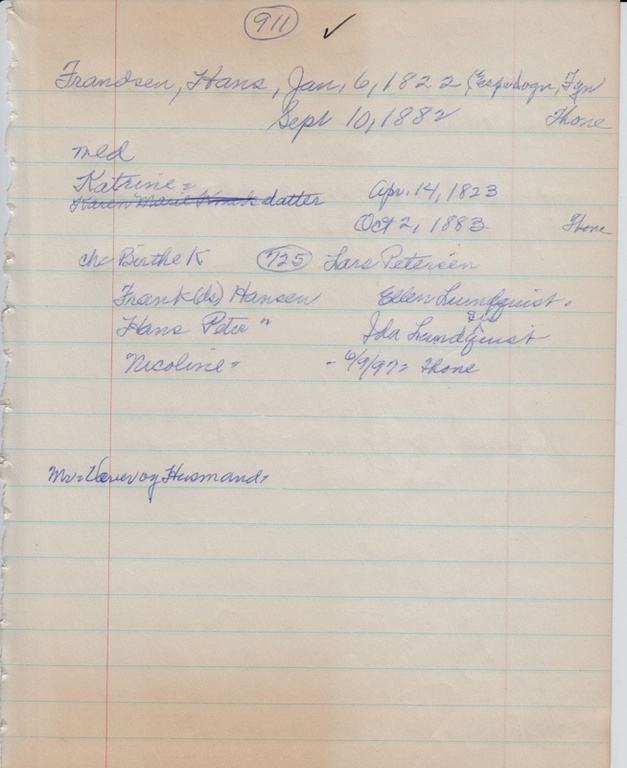 911 ✓
Frandsen, Hans, Jan. 6, 1822 (Espedogn, Fyn
Sept 10, 1882 Thone
med
Katrine =
Karen Marie datter Apr. 14, 1823
Oct 2, 1883 Thone
ch: Birthe K 725 Lars Petersen
Frank (ds) Hansen Ellen Lundquist.
Hans Peter " Ida Lundquist
Nicoline = - 6/9/97 = Thone
Mr = Væver og Husmand.